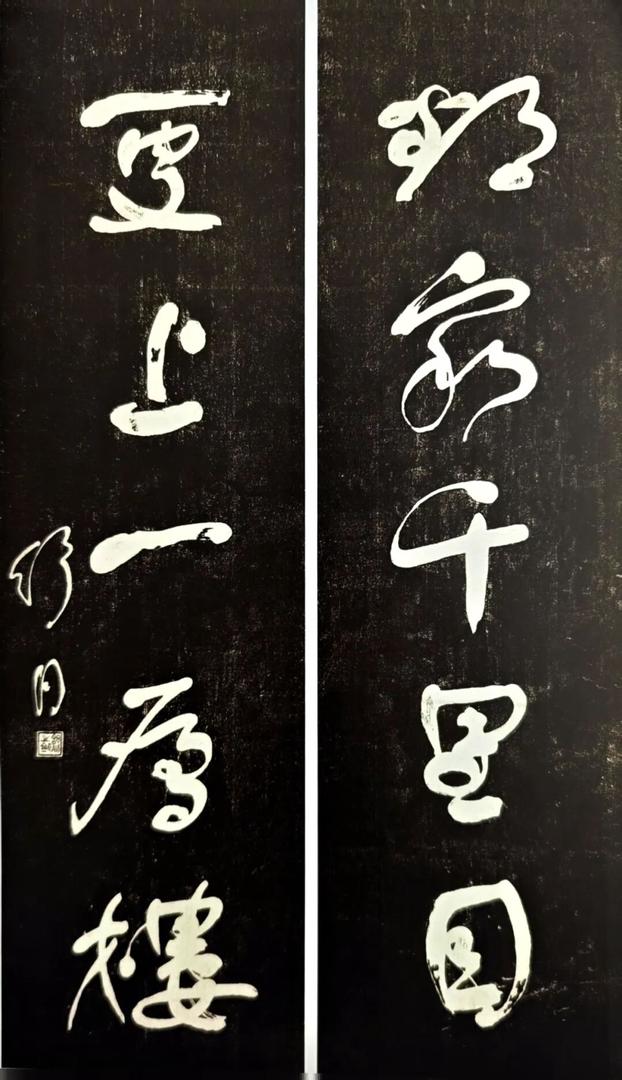 欲穷千里目
更上一层楼
舒同